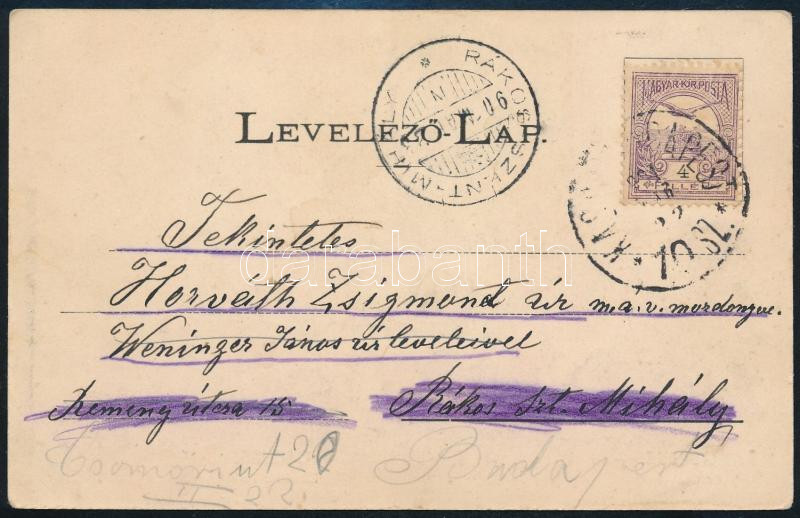 MAGYAR KIR. POSTA
4
FILLÉR
RÁKOS-SZENT-MIHÁLY
06
LEVELEZŐ-LAP.
10 SZ.
Tekintetes
Horváth Zsigmond úr m.a.v. mozdonyve.
Weninger János úr leveleivel
Kemény útcza 15 Rákos Szt. Mihály
Csomóri út 28 Budapest
II 22
darabanth